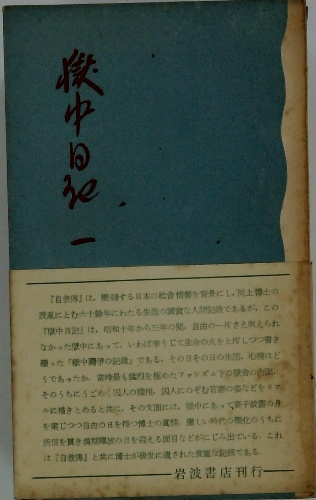 獄中日記
一
『自叙傳』は、變轉する日本の社會情勢を背景にし、河上博士の
波瀾にとむ六十餘年にわたる生涯の誠實な人間記録であるが、この
『獄中日記』は、昭和十年から三年の間、自由の一片さえ與えられ
なかった獄中にあって、いわば辛うじて生命の火をと しつつ書き
綴った『獄中闘爭の記録』である。その日その日の生活、心境はど
うであったか。當時最も猛烈を極めたファシズム下の獄舎の
そのうちにうごめく囚人の樣相、囚人にのぞむ官憲の姿などをリア
ルに描きとめると共に、その文面には、獄中にあって妻子故舊の身
を案じつつ自由の日を待つ博士の眞情、激しい時代の變化のうちに
所信を貫き滿期釋放の日を迎える面目などがにじみ出ている。これ
は『自叙傳』と共に博士が後世に遺された貴重な記録である。
岩波書店刊行